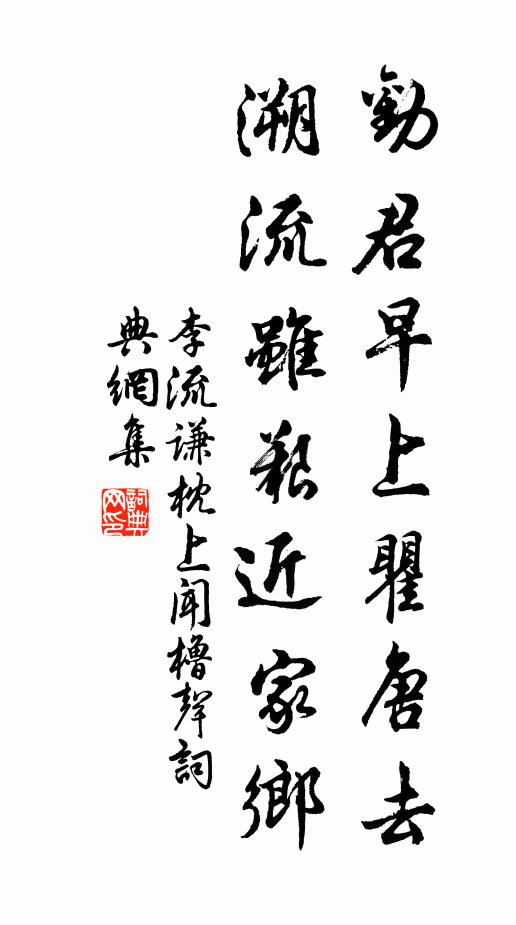 勸君早上瞿唐去
溯流雖艱近家鄉
李流謙枕上聞櫓聲詞
典網集
詞典網印